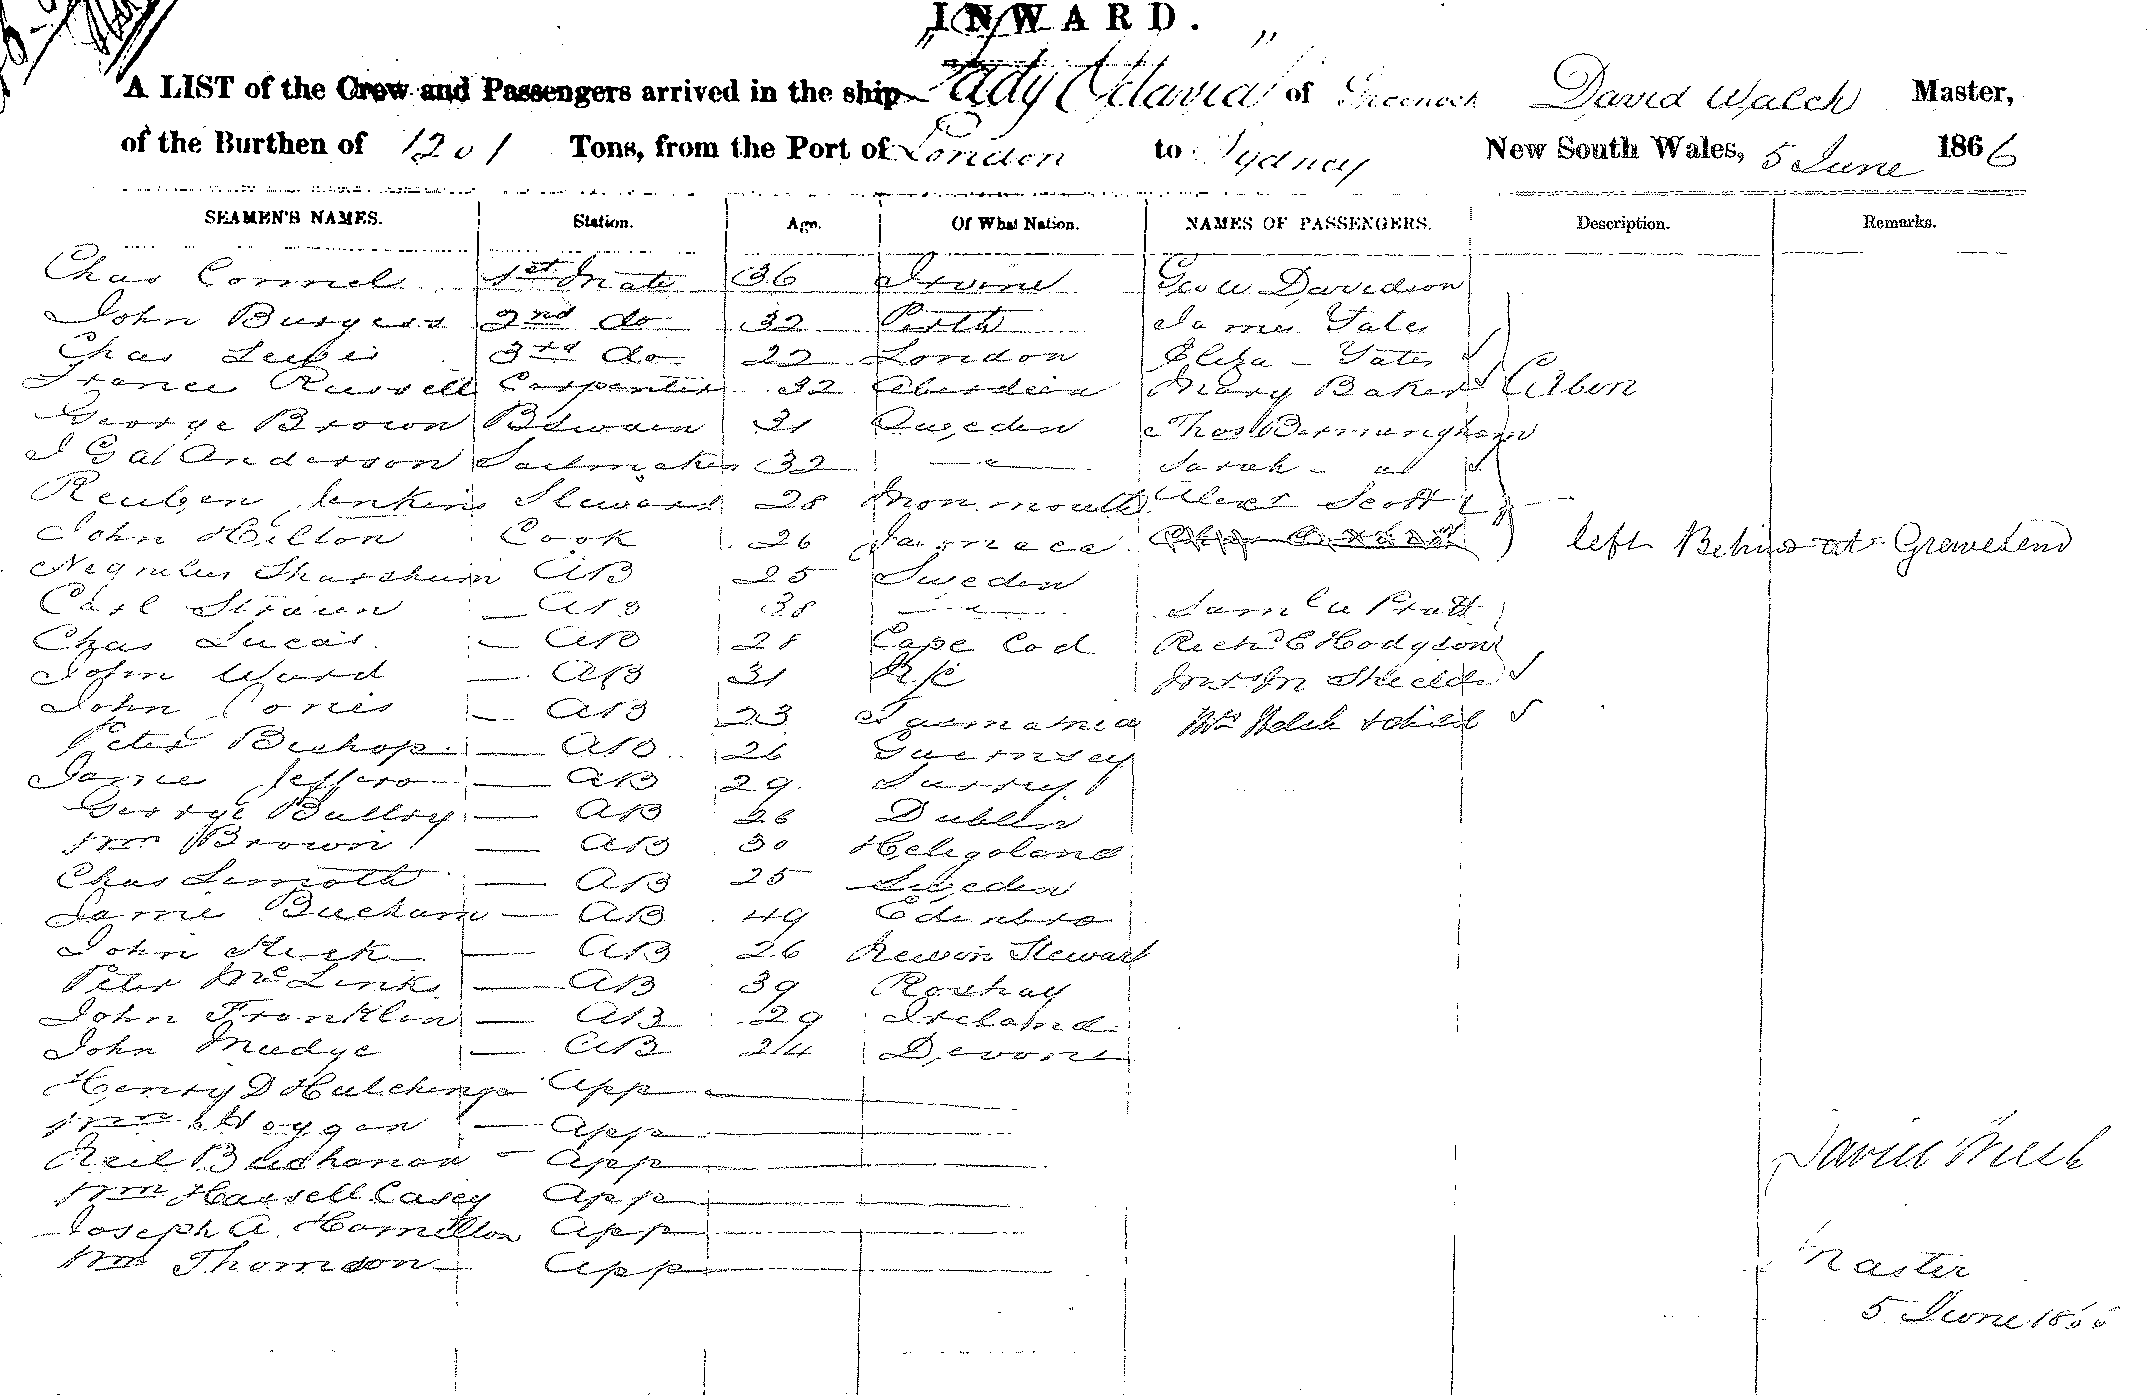 INWARD.
A LIST of the Crew and Passengers arrived in the ship "Lady Octavia" of Greenock David Walch Master,
of the Burthen of 1201 Tons, from the Port of London to Sydney New South Wales, 5 June 1866
SEAMEN'S NAMES. Station. Age. Of What Nation. NAMES OF PASSENGERS. Description. Remarks.
Chas Connel 1st Mate 36 Irvine Geo W Davidson
John Burgess 2nd do 32 Perth James Yates
Chas 3rd do 22 London Eliza - Yates
France Russell Carpenter 32 Aberdeen Mary Baker Cabin
George Brown Boswain 31 Sweden Thos Bermangham
Anderson Sailmaker 32 — " — Sarah - do
Reuben Jenkins Steward 28 Monmouth Alexr Scott
John Hilton Cook 26 Jamaca left Behind at Gravesend
AB 25 Sweden
Carl Straun — AB 38 — " — Saml W Pratt
Chas Lucas — AB 28 Cape Cod Richd E Hodgson
John Ward — AB 31 Shields
John Jones — AB 23 Tasmania Mrs Welch & child
Peter Bishop — AB 26 Guernsey
Jame Jeffers — AB 29 Surrey
George Bulley — AB 26 Dublin
Wm Brown — AB 30 Heligoland
Chas — AB 25 Sweden
Jame Bucham — AB 49 Edinbro
John — AB 26 Stewart
Peter — AB 39 Rothay
John Franklin — AB 29 Ireland
John Mudge — AB 24 Devon
Henry D Hutchings App
Wm Hoggan — App
Neil Buchanan - App
Wm Hassell Casey App
Joseph A. Hamilton App
Wm Thomson App
David Welch
Master
5 June 1866